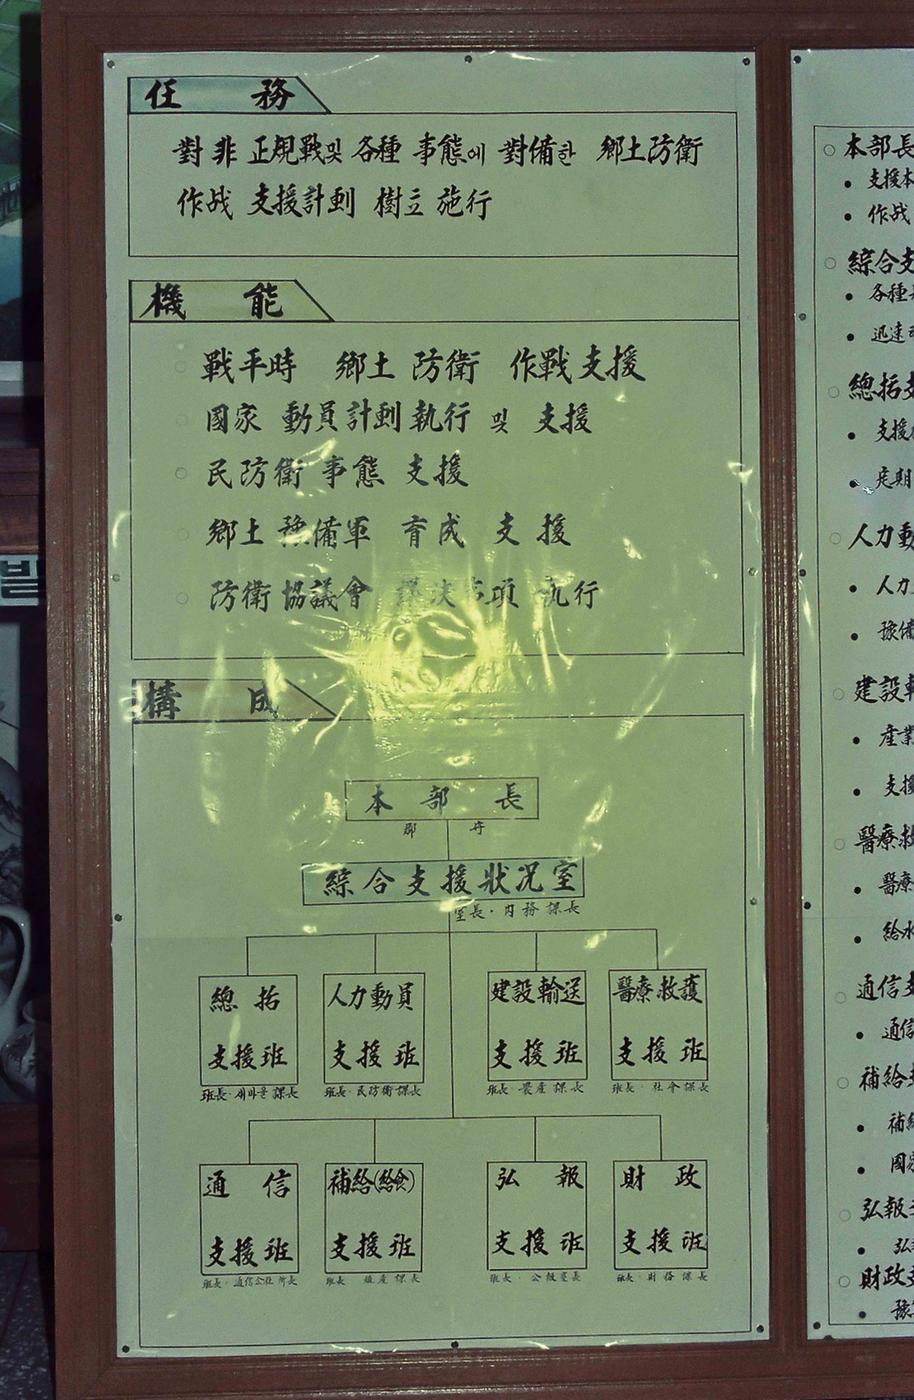 任 務
對非正規戰및 各種 事態에 對備한 鄕土防衛
作战 支援計劃 樹立 施行
機 能
戰平時 鄕土 防衛 作戰支援
國家 動員計劃執行 및 支援
民防衛 事態 支援
鄕土 豫備軍 育成 支援
防衛協議會 議決事項 執行
構 成
本部長
郡守
綜合支援狀況室
室長·内務課長
總括 支援班
班長·새마을課長
人力動員 支援班
班長·民防衛課長
建設輸送 支援班
班長· 産課長
醫療救護 支援班
班長·社會課長
通信 支援班
班長·通信公社所長
補給(給食) 支援班
班長· 産課長
弘報 支援班
班長·公報室長
財政 支援班
班長·財務課長
本部長
支援本
作战
綜合支
各種
迅速
總括支
支援
定期
人力動
人力
豫備
建設輸
産業
支援
醫療救
醫療
給水
通信支
通信
補給
補給
國
弘報支
弘
財政支
豫
발